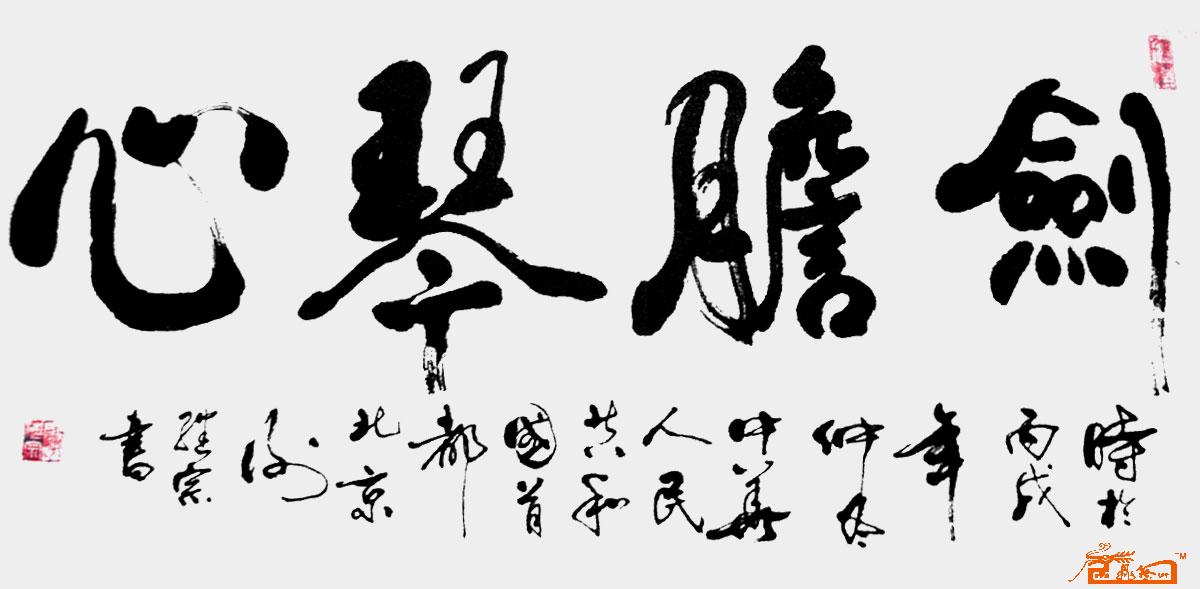 劍膽琴心
時於
丙戌
年
仲冬
中華
人民
共和
國首
都
北京
謝
繼宗
書